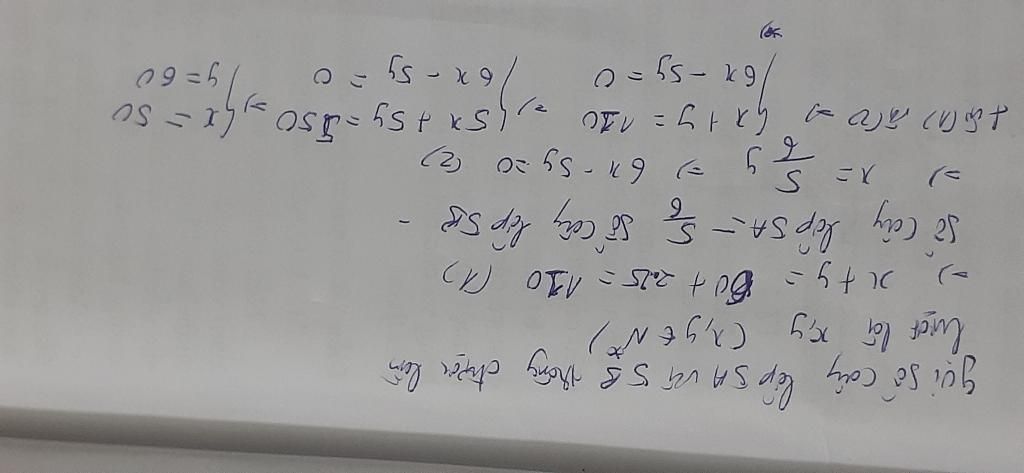 gọi số cây lớp 5A và 5B trồng được lần
lượt là x,y (x,y ∈ N*)
=) x + y = 60 + 2.25 = 110 (1)
Số cây lớp 5A = 5/6 số cây lớp 5B
=) x = 5/6 y =) 6x - 5y = 0 (2)
Từ (1) và (2) =) { x + y = 110 =) { 5x + 5y = 550 =) { x = 50
{ 6x - 5y = 0 { 6x - 5y = 0 { y = 60